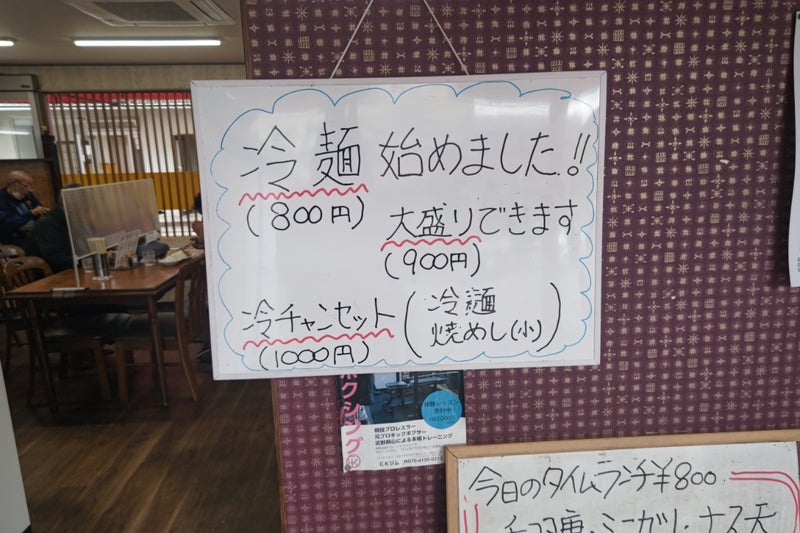 冷麺 始めました!!
(800円)
大盛りできます
(900円)
冷チャンセット
(1000円)
(冷麺
焼めし(小))
ボクシング
体験レッスン
受付中!
現役プロレスラー
元プロキックボクサー
近野剣心による本格トレーニング
CKジム
今日のタイムランチ¥800